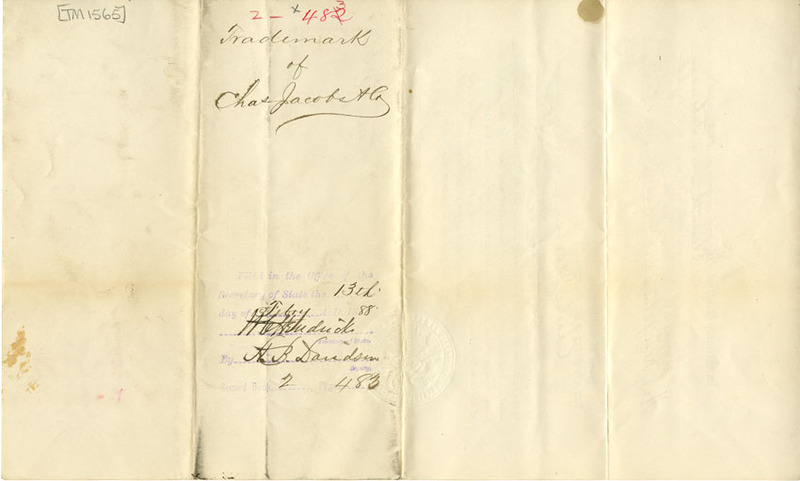 [TM1565]
2 - x 483
Trademark
of
Chas Jacobs & Co
Filed in the Office of the
Secretary of State the 13th
day of Feby A.D. 1888
W C Hendricks
Secretary of State
By A. B. Davidson
Deputy
Record Book 2 Page 483